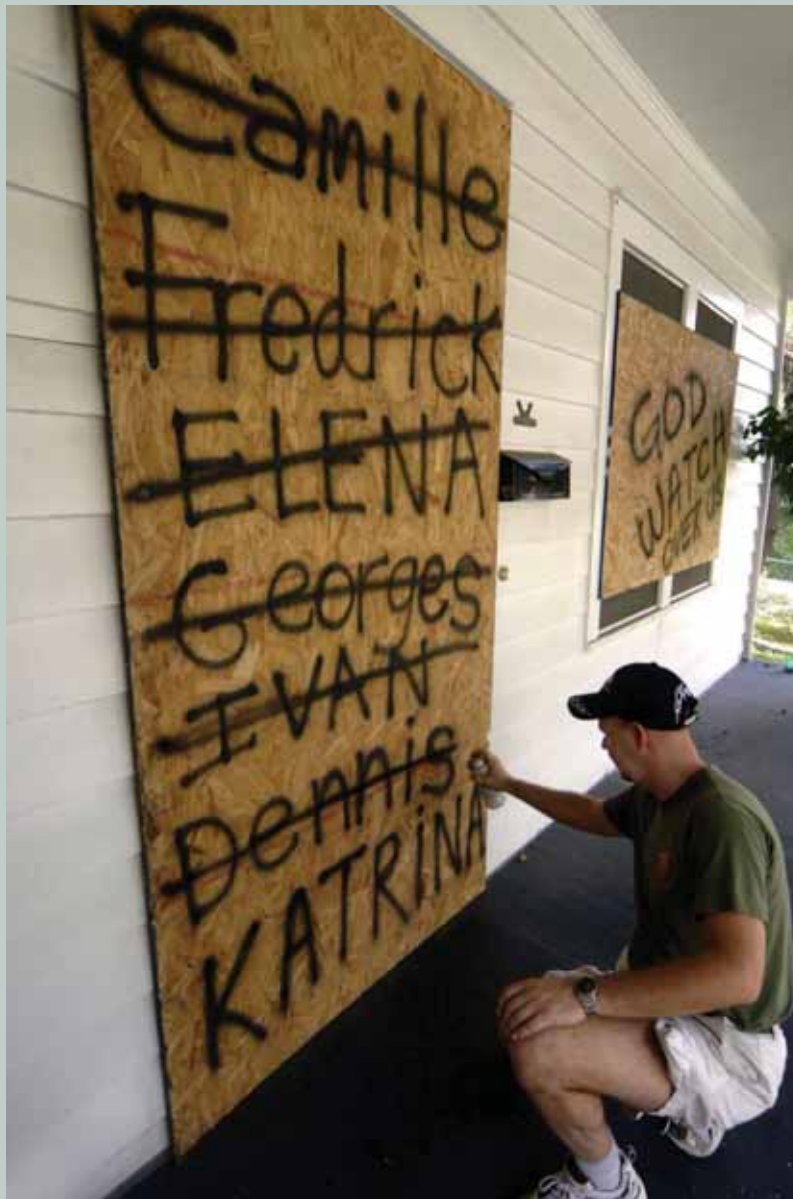 Camille
Fredrick
ELENA
Georges
IVAN
Dennis
KATRINA
GOD
WATCH
OVER US